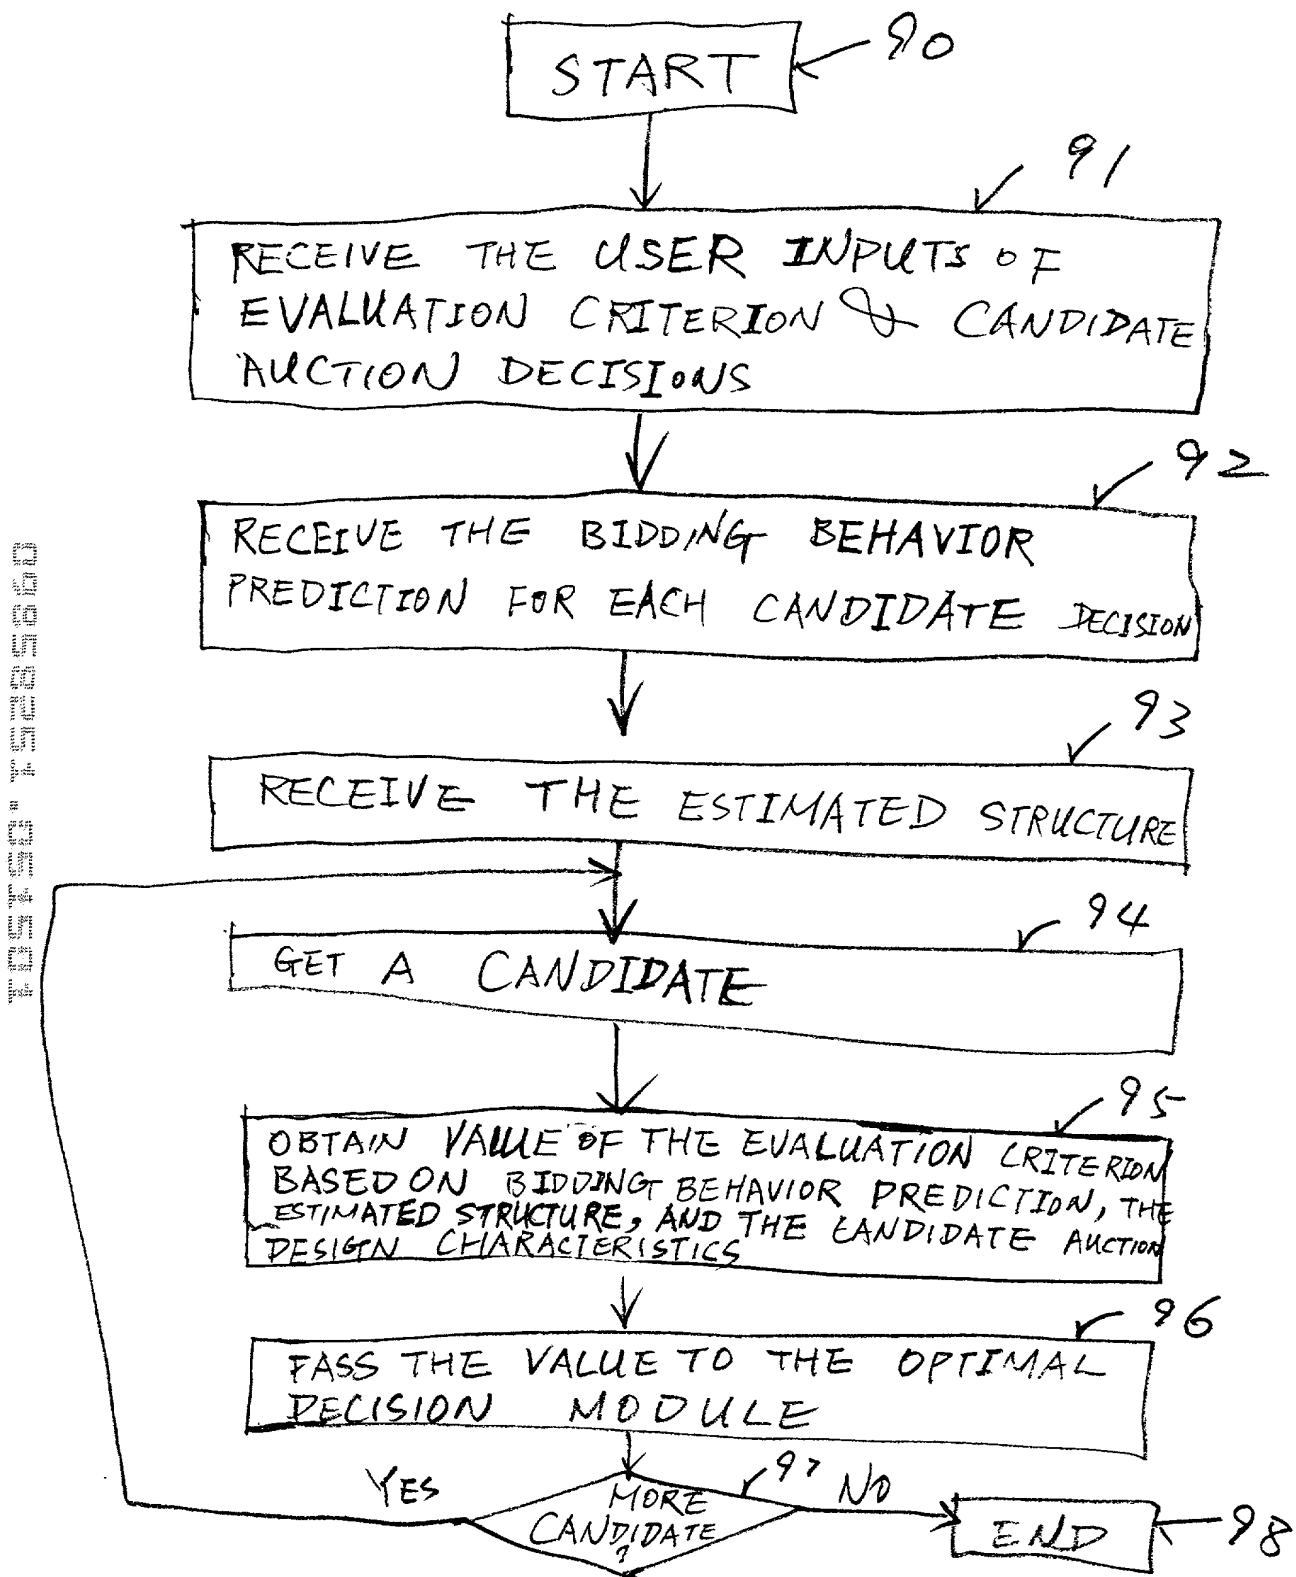 START
90
91
RECEIVE THE USER INPUTS OF
EVALUATION CRITERION & CANDIDATE
AUCTION DECISIONS
92
RECEIVE THE BIDDING BEHAVIOR
PREDICTION FOR EACH CANDIDATE DECISION
93
RECEIVE THE ESTIMATED STRUCTURE
94
GET A CANDIDATE
95
OBTAIN VALUE OF THE EVALUATION CRITERION
BASED ON BIDDING BEHAVIOR PREDICTION, THE
ESTIMATED STRUCTURE, AND THE CANDIDATE AUCTION
DESIGN CHARACTERISTICS
96
PASS THE VALUE TO THE OPTIMAL
DECISION MODULE
97
YES
MORE
CANDIDATE
?
NO
END
98